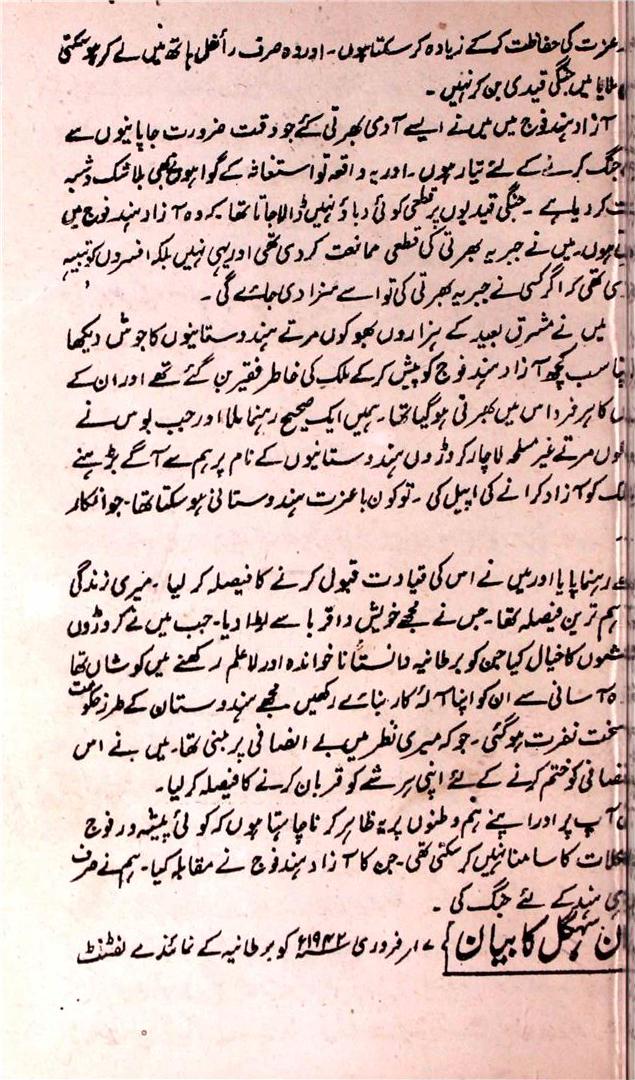 عزت کی حفاظت کرکے زیادہ کر سکتا ہوں۔ اور وہ صرف رائفل ہاتھ میں لے کر ہو سکتی
ملایا میں جنگی قیدی بن کر نہیں۔
آزاد ہند فوج میں میں نے ایسے آدی بھرتی کئے جو وقت ضرورت جاپانیوں سے
جنگ کرنے کے لئے تیار ہوں۔ اور یہ واقعہ تو استغاثہ کے گواہوں نے بھی بلا شک و شبہ
کر دیا ہے۔ جنگی قیدیوں پر قطعی کوئی دباؤ نہیں ڈالا جاتا تھا کہ وہ آزاد ہند فوج میں
ہوں۔ میں نے جبریہ بھرتی کی قطعی ممانعت کر دی تھی اور یہی نہیں بلکہ افسروں کو تنبیہہ
دی تھی کہ اگر کسی نے جبریہ بھرتی کی تو اسے سزا دی جائے گی۔
میں نے مشرق بعید کے ہزاروں بھوکوں مرتے ہندوستانیوں کا جوش دیکھا
اپنا سب کچھ آزاد ہند فوج کو پیش کرکے ملک کی خاطر فقیر بن گئے تھے اور ان کے
کا ہر فرد اس میں بھرتی ہو گیا تھا۔ ہمیں ایک صحیح رہنما ملا اور جب بوس نے
مرتے غیر مسلح لاچار کروڑوں ہندوستانیوں کے نام پر ہم سے آگے بڑہنے
ملک کو آزاد کرانے کی اپیل کی۔ تو کون باعزت ہندوستانی ہو سکتا تھا۔ جو انکار
رہنما پایا اور میں نے اس کی قیادت قبول کرنے کا فیصلہ کر لیا۔ میری زندگی
اہم ترین فیصلہ تھا۔ جس نے مجھے خویش و اقربا سے لڑا دیا۔ جب میں نے کروڑوں
کا خیال کیا جن کو برطانیہ دانستاً ناخواندہ اور لاعلم رکھنے میں کوشاں تھا
آسانی سے ان کو اپنا آلۂ کار بنائے رکھیں مجھے ہندوستان کے طرز حکومت
سخت نفرت ہو گئی۔ جو کہ میری نظر میں بے انصافی پر مبنی تھا۔ میں نے اس
کو ختم کرنے کے لئے اپنی ہر شے کو قربان کرنے کا فیصلہ کر لیا۔
آپ پر اور اپنے ہم وطنوں پر یہ ظاہر کرنا چاہتا ہوں کہ کوئی پیشہ ور فوج
کا سامنا نہیں کر سکتی تھی۔ جن کا آزاد ہند فوج نے مقابلہ کیا۔ ہم نے صرف
ہند کے لئے جنگ کی۔
سہگل کا بیان ۱۷ر فروری ۱۹۴۲ء کو برطانیہ کے نمائندے لفٹنٹ